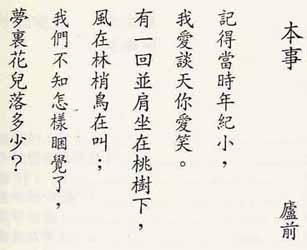 本事
盧前
記得當時年紀小，
我愛談天你愛笑。
有一回並肩坐在桃樹下，
風在林梢鳥在叫；
我們不知怎樣睏覺了，
夢裏花兒落多少？